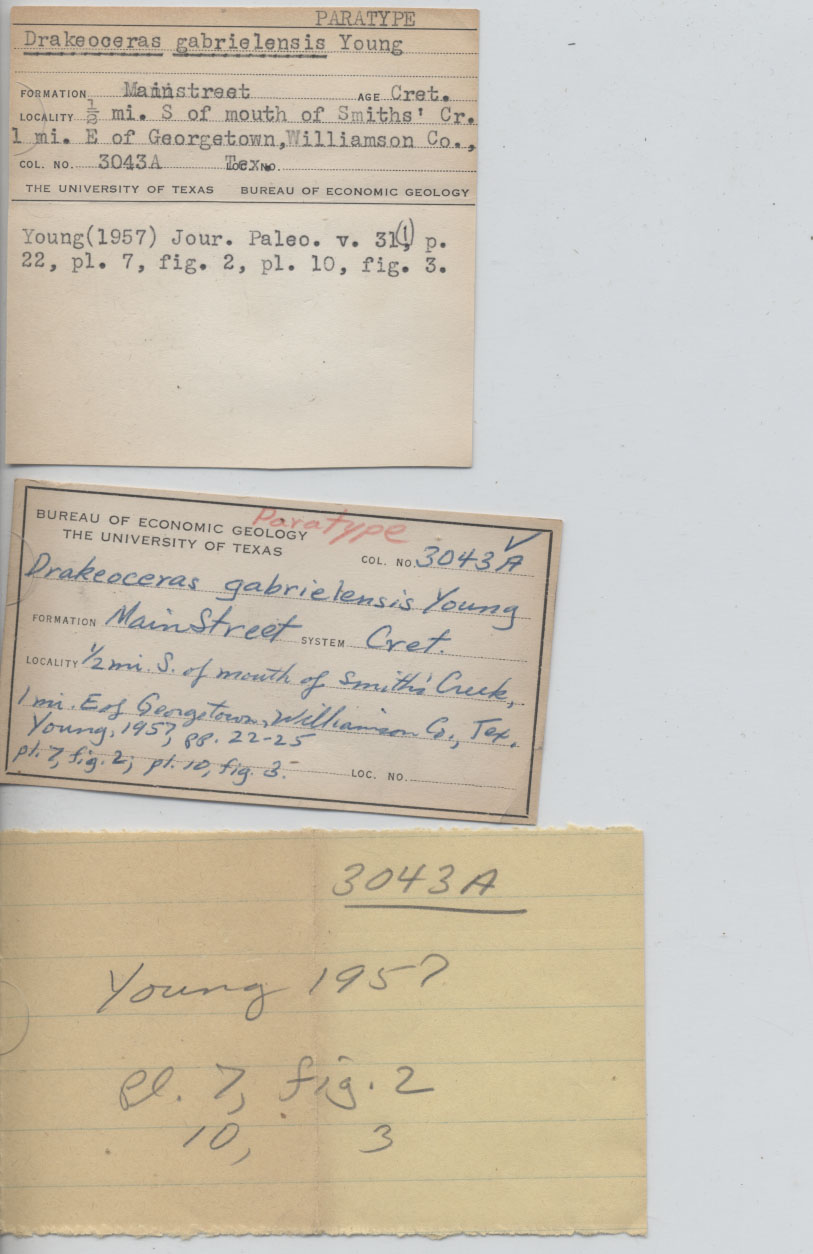 PARATYPE
Drakeoceras gabrielensis Young
FORMATION Mainstreet AGE Cret.
LOCALITY ½ mi. S of mouth of Smiths' Cr.
1 mi. E of Georgetown,Williamson Co.,
COL. NO. 3043A Tex. LOC. NO.
THE UNIVERSITY OF TEXAS BUREAU OF ECONOMIC GEOLOGY
Young(1957) Jour. Paleo. v. 31(1), p.
22, pl. 7, fig. 2, pl. 10, fig. 3.
Paratype
BUREAU OF ECONOMIC GEOLOGY
THE UNIVERSITY OF TEXAS
COL. NO. 3043A
Drakeoceras gabrielensis Young
FORMATION MainStreet SYSTEM Cret.
LOCALITY 1/2 mi. S. of mouth of Smith's Creek,
1 mi. E of Georgetown, Williamson Co., Tex.
Young, 1957, pp. 22-25
pl. 7, fig. 2; pl. 10, fig. 3.
LOC. NO.
3043A
Young 1957
pl. 7, fig. 2
10, 3